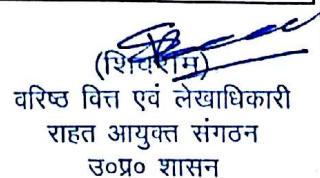 (शिवराम)
वरिष्ठ वित्त एवं लेखाधिकारी
राहत आयुक्त संगठन
उ०प्र० शासन